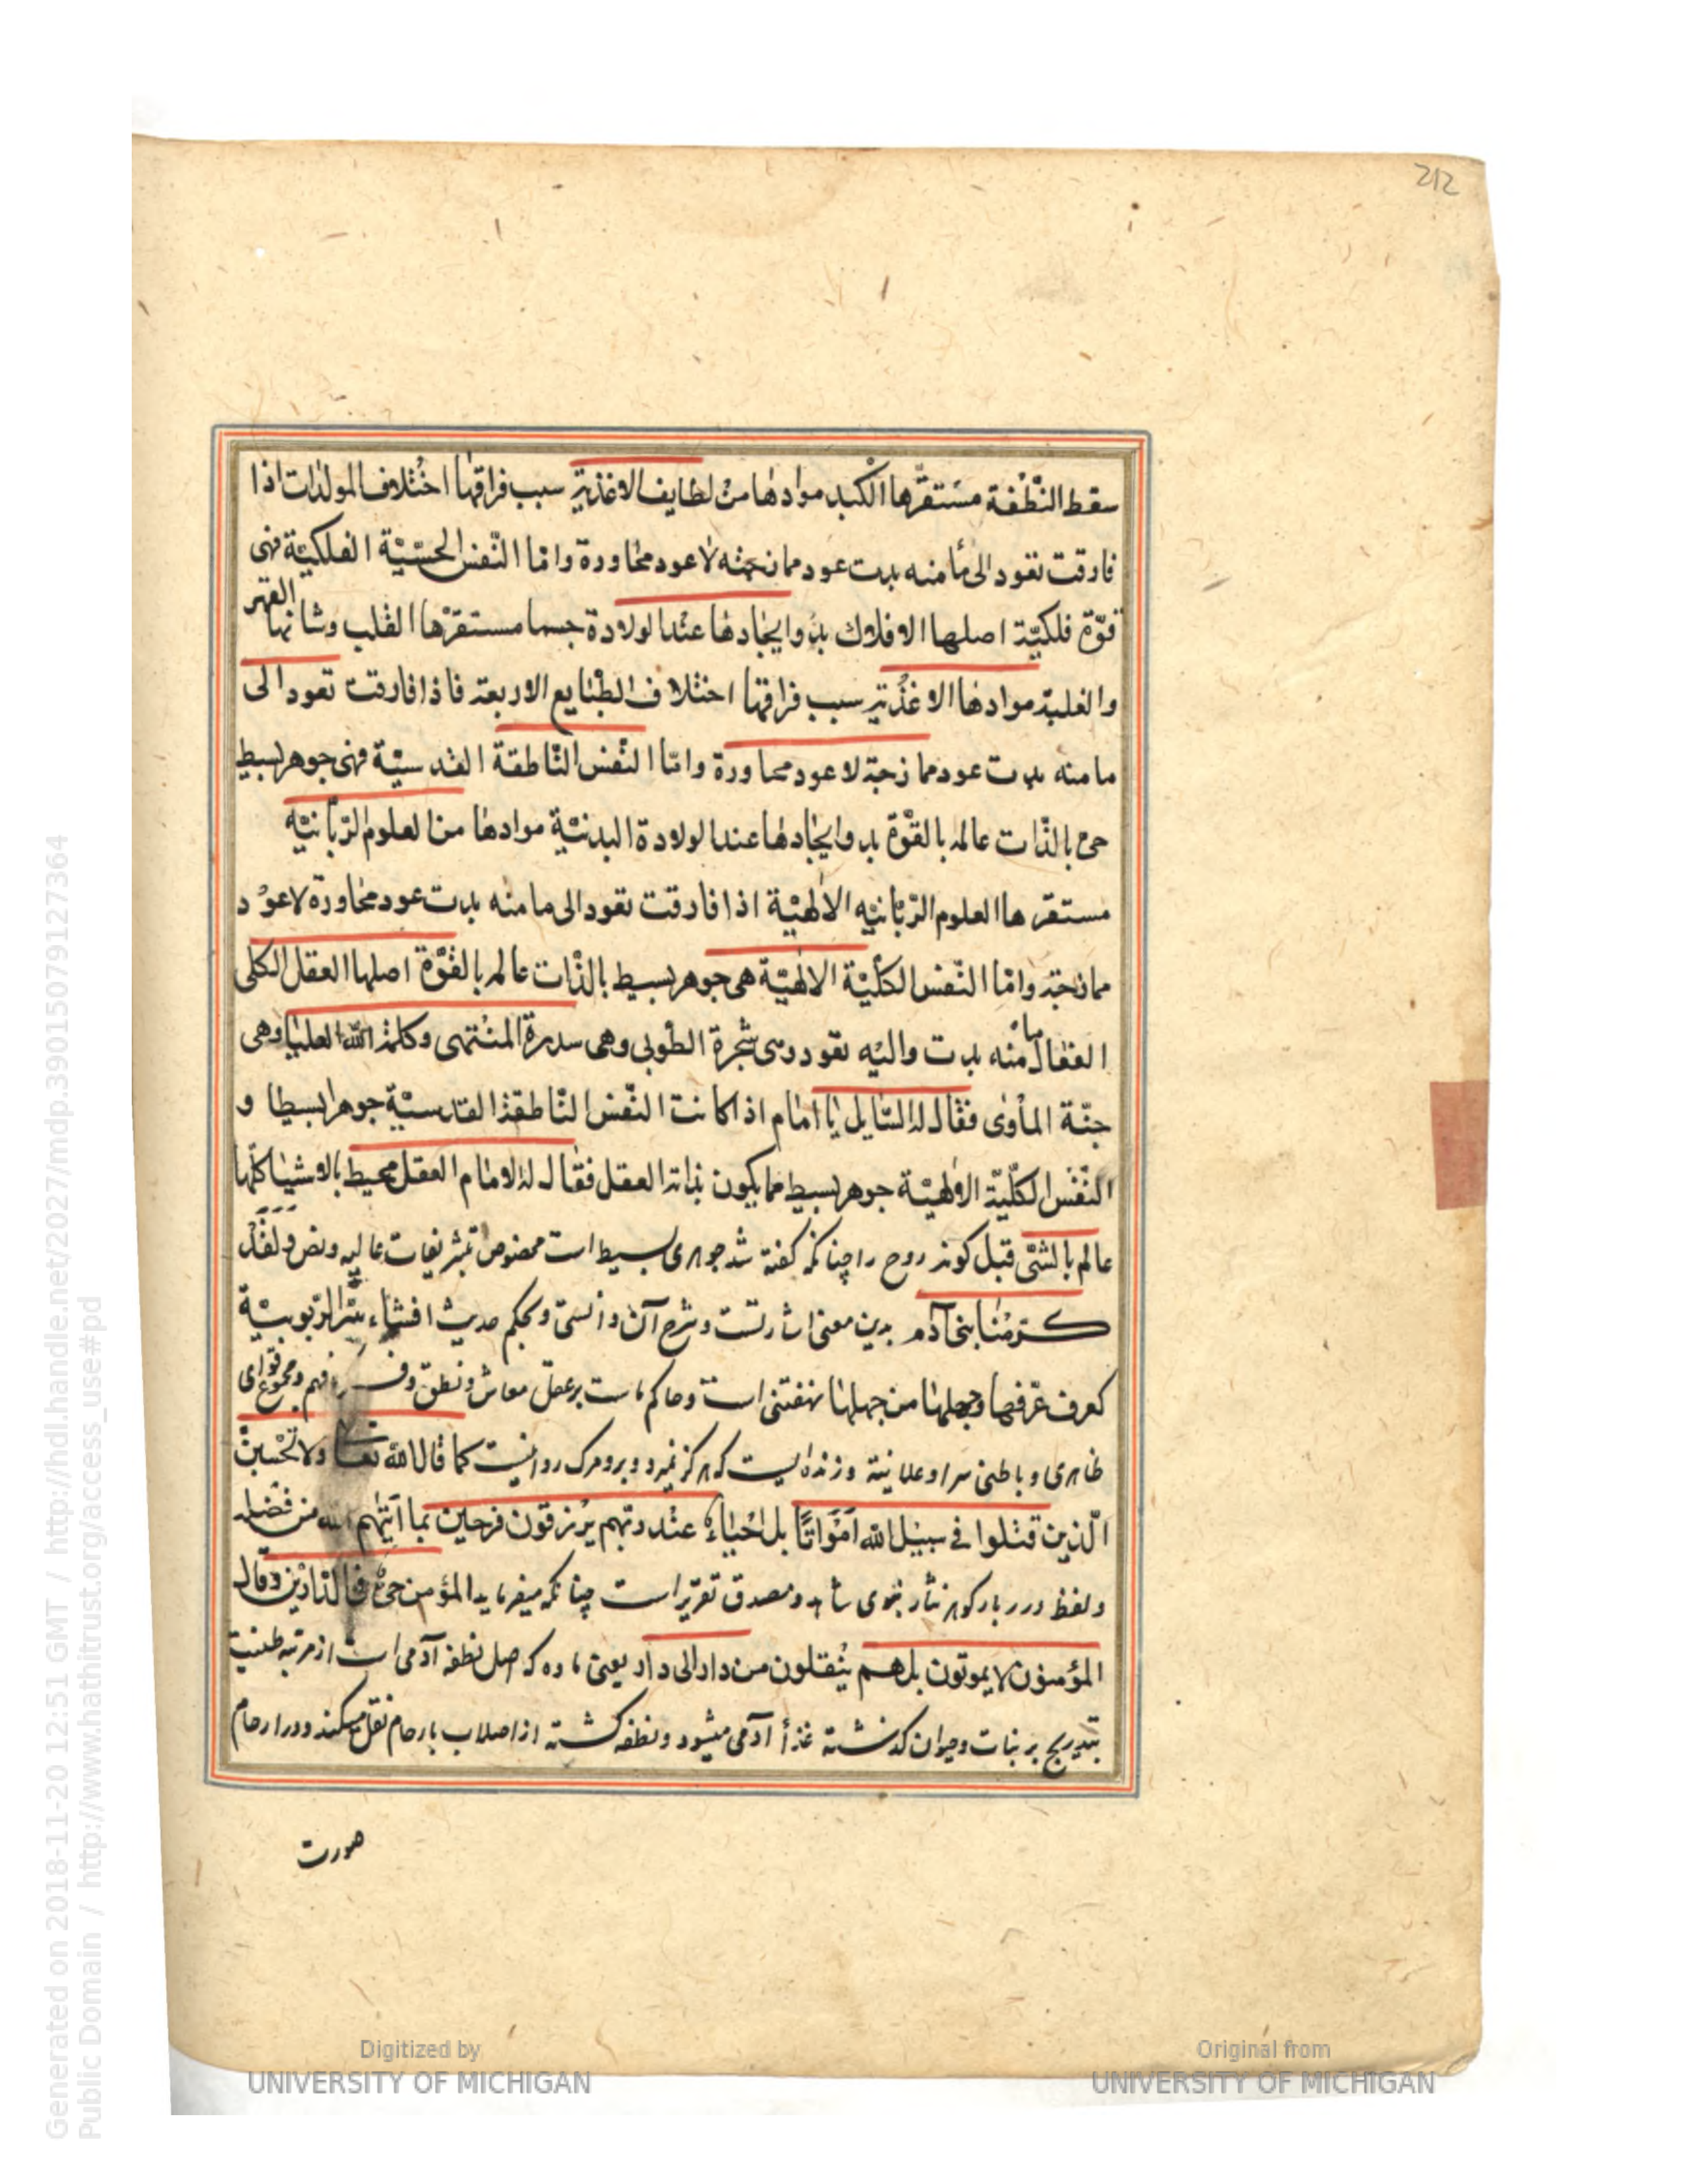 212
سقط النّطفة مستقرّها الكبد موادها من لطايف الاغذية سبب فراقها اختلاف المولدات اذا
فارقت تعود الى ما منه بدت عود ممازجته لا عود مجاورة وامّا النّفس الحسّيّة الفلكيّة فهى
قوّة فلكيّة اصلها الافلاك بدو ايجادها عند الولادة جسما مستقرّها القلب وشانها القهر
والغلبة موادها الاغذية سبب فراقها اختلاف الطبايع الاربعة فاذا فارقت تعود الى
ما منه بدت عود ممازجة لا عود مجاورة وامّا النّفس النّاطقة القدسيّة فهى جوهر بسيط
حىّ بالذّات عالمه بالقوّة بدو ايجادها عند الولادة البدنيّة موادها من العلوم الرّبّانيّه
مستقرها العلوم الرّبّانيّه الالهيّة اذا فارقت تعود الى ما منه بدت عود مجاورة لا عود
ممازجة وامّا النّفس الكلّيّة الالهيّة هى جوهر بسيط بالذّات عالمه بالقوّة اصلها العقل الكلى
الفعّال ما منه بدت واليه تعود وهى شجرة الطوبى وهى سدرة المنتهى وكلمة الله العليا وهى
جنّة المأوى فقال له السّايل يا امام اذا كانت النّفس النّاطقة القدسيّة جوهرا بسيطا و
النّفس الكلّيّة الالهيّة جوهر بسيط مما يكون بذاته العقل فقال له الامام العقل محيط بالاشيا كلّها
عالم بالشئ قبل كونه روح را چنانكه كفته شد جوهرى بسيط است مخصوص تبشريفات عاليه ونص ولقد
كرّمنا بنى آدم بدين معنى اشارتست وشرح آن دانستى وبحكم حديث افشاء سرّ الرّبوبيّة
كعرف عرفها وجهلها من جهلها نهفتنى است وحاكم است بر عقل معاش ونطق و فهم ومجموع قواى
ظاهرى وباطنى سرا وعلانية وزنده ايست كه هركز نميرد وبرو مرك روا نيست كما قال الله تعا ولا تحسبنّ
الّذين قتلوا فى سبيل الله امواتًا بل احياءٌ عند ربّهم يرزقون فرحين بما آتيهم الله من فضله
ولفظ درر بار كوهر نثار نبوى شاهد ومصدق تقرير است چنانكه ميفرمايد المؤمن حىّ فى الدّارين وقال
المؤمنون لا يموتون بل هم ينقلون من دار الى دار يعنى ماده كه اصل نطفه آدمى است از مرتبه طينيت
بتدريج بر نبات وحيوان كذشته غذاٴ آدمى ميشود ونطفه كشته از اصلاب بارحام نقل ميكند ودر ارحام
صورت
Generated on 2018-11-20 12:51 GMT / http://hdl.handle.net/2027/mdp.39015079127364
Public Domain / http://www.hathitrust.org/access_use#pd
Digitized by
UNIVERSITY OF MICHIGAN
Original from
UNIVERSITY OF MICHIGAN